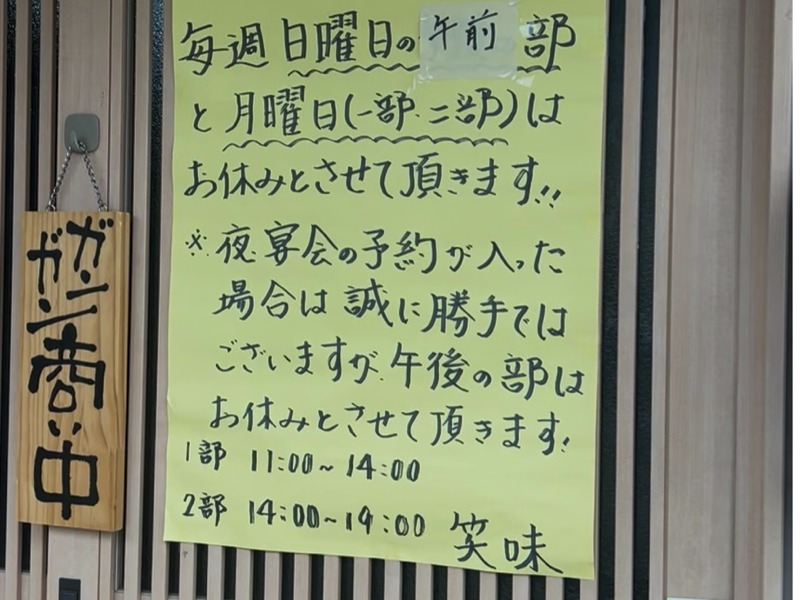 毎週日曜日の午前部
と月曜日(一部・二部)は
お休みとさせて頂きます!!
※夜宴会の予約が入った
場合は誠に勝手では
ございますが、午後の部は
お休みとさせて頂きます!
1部 11:00~14:00
2部 14:00~19:00 笑味
ガンガン商い中